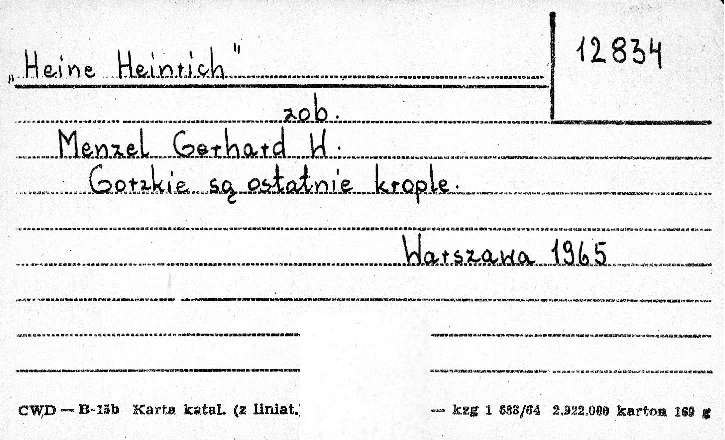 12834
„Heine Heinrich"
zob.
Menzel Gerhard W.
Gorzkie są ostatnie krople.
Warszawa 1965
CWD — B-15b Karta katal. (z liniat.) — kzg 1 683/64 2.922.000 karton 160 g